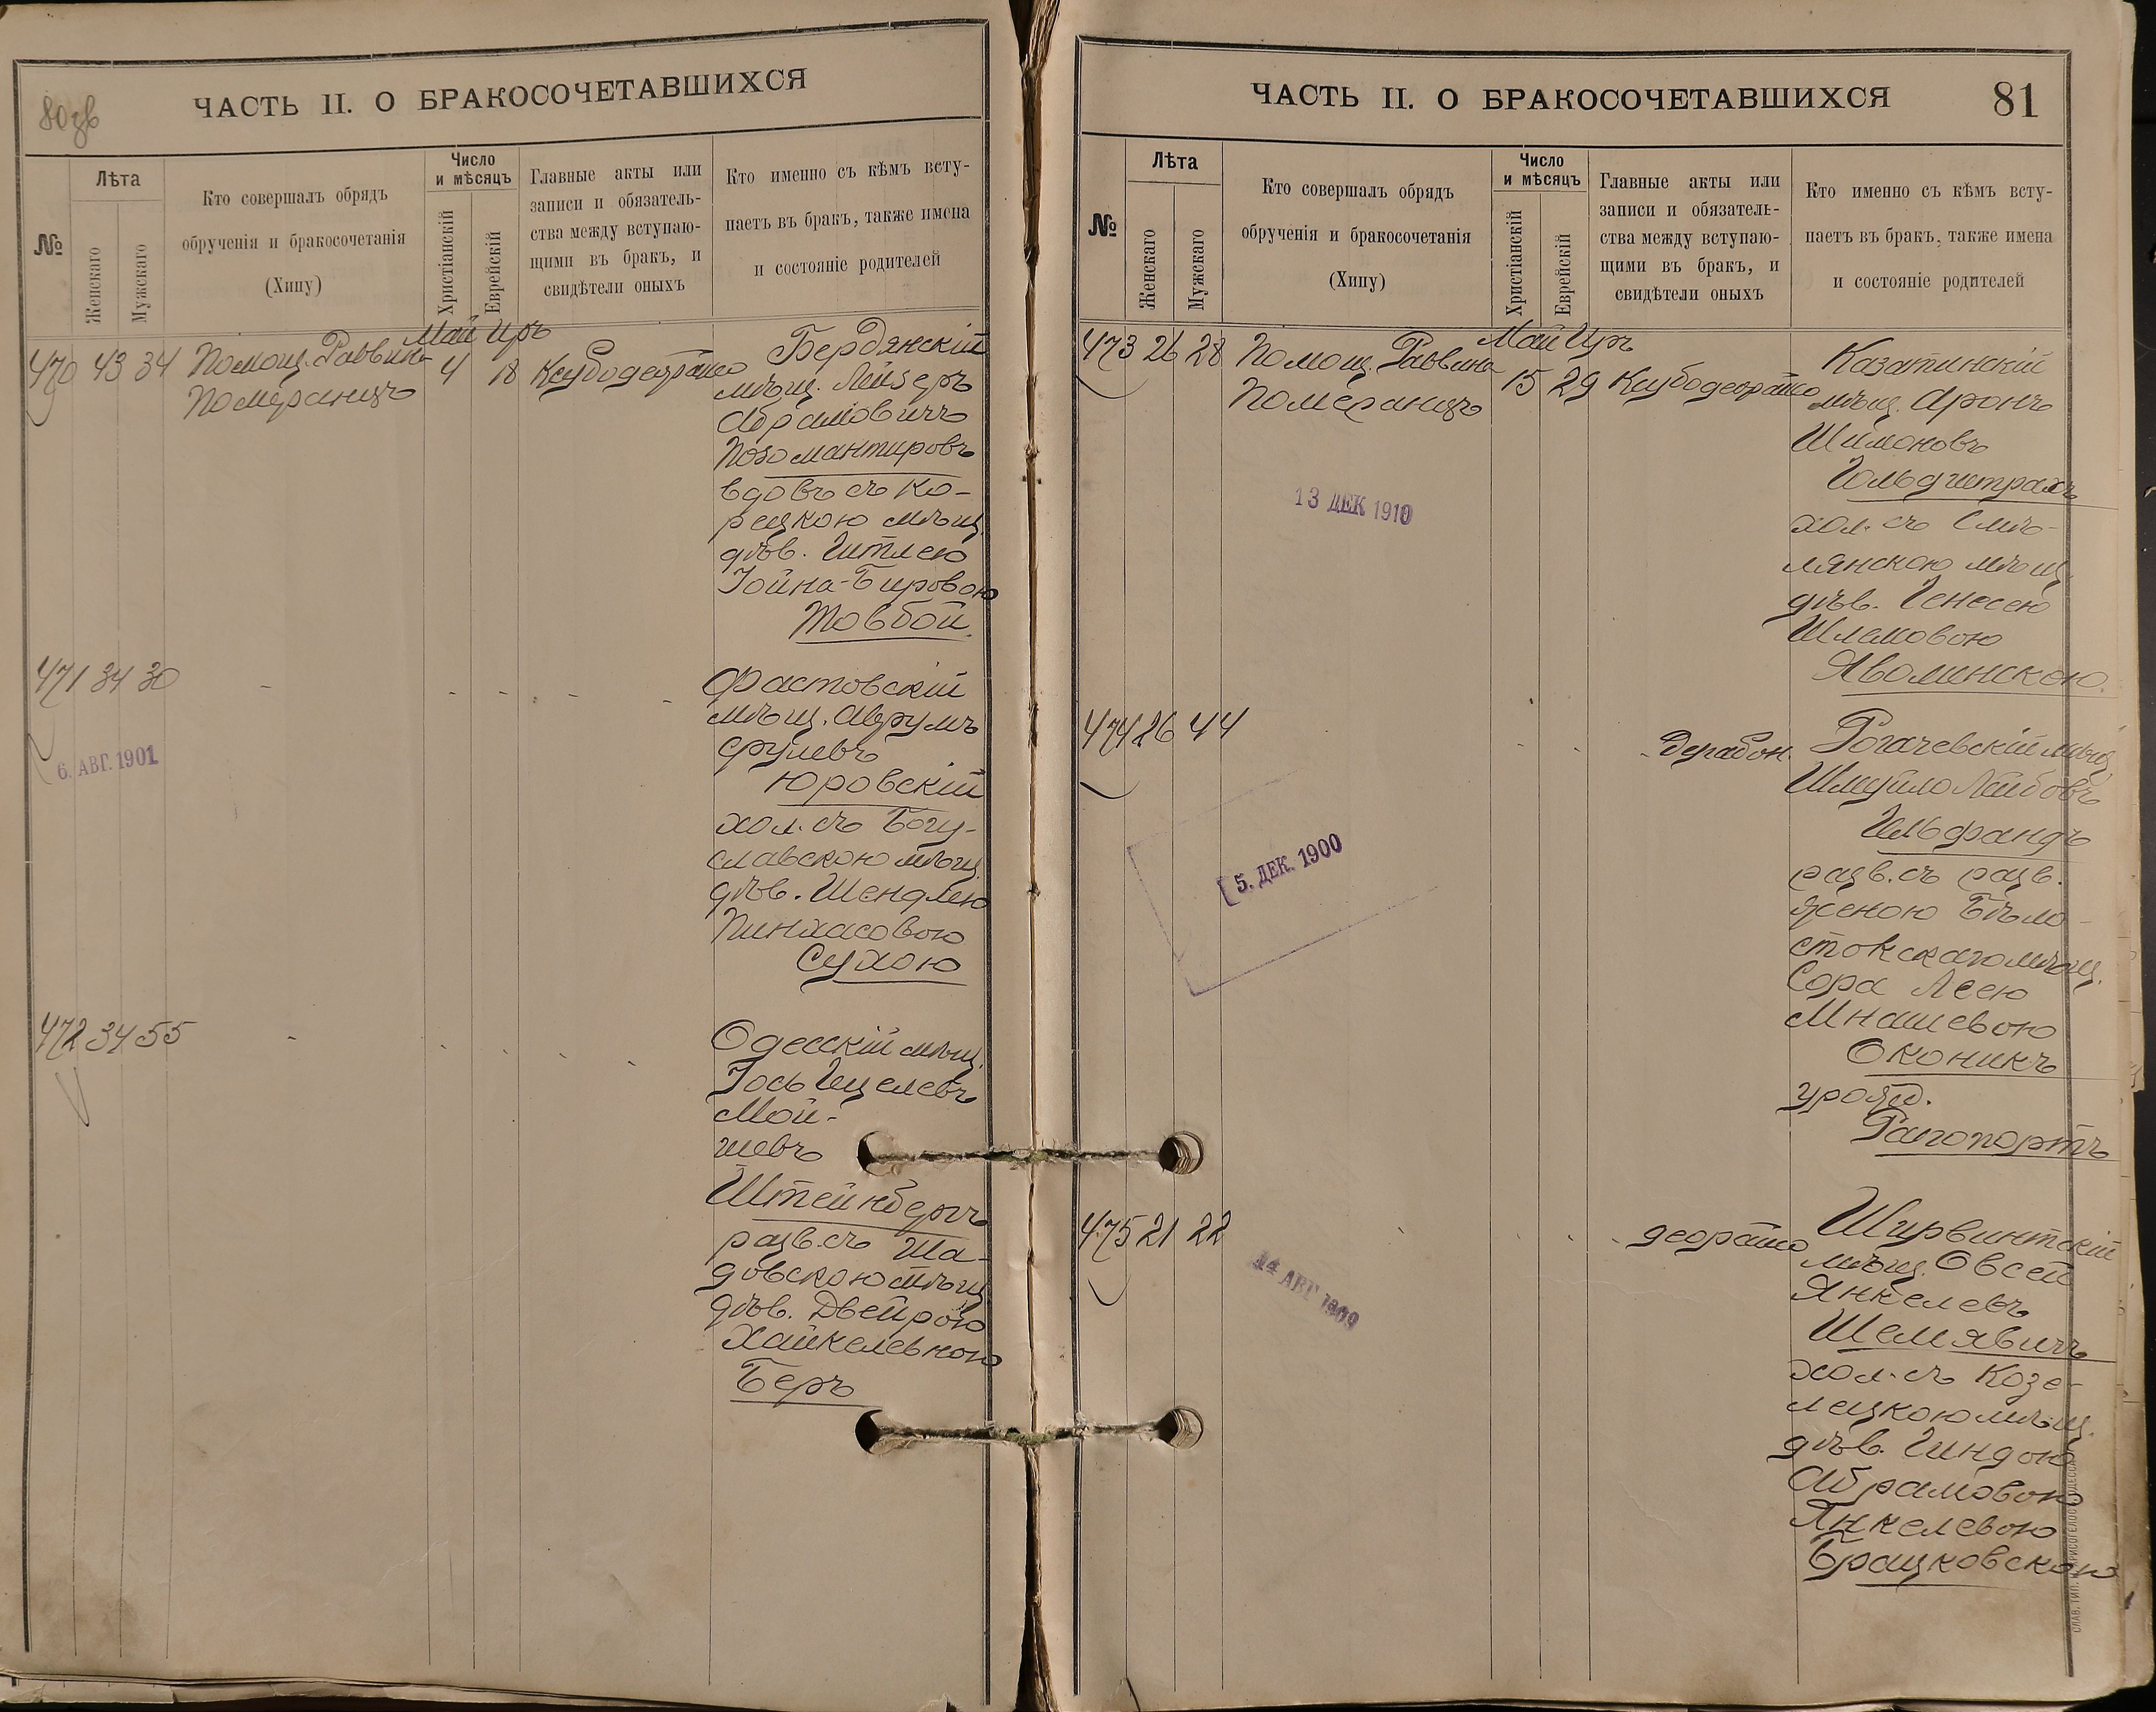 80 зв
ЧАСТЬ II. О БРАКОСОЧЕТАВШИХСЯ
№
Лѣта
Женскаго
Мужскаго
Кто совершалъ обрядъ
обрученія и бракосочетанія
(Хипу)
Число
и мѣсяцъ
Христіанскій
Еврейскій
Главные акты или
записи и обязатель-
ства между вступаю-
щими въ бракъ, и
свидѣтели оныхъ
Кто именно съ кѣмъ всту-
паетъ въ бракъ, также имена
и состояніе родителей
470 43 34 Помощ. Раввина
Померанцъ
Май Иръ
4 18
Кисубодеорайсо
Бердянскій
мѣщ. Лейзеръ
Абрамовичъ
Позомантировъ
вдовъ съ Ко-
рецкою мѣщ.
дѣв. Гитлею
Іойна-Бировою
Товбой.
471 34 30 - - - - -
6. АВГ. 1901
Фастовскій
мѣщ. Аврумъ
Срулевъ
Юровскій
хол. съ Богу-
славскою мѣщ.
дѣв. Шендлею
Пинхасовою
Сухою
472 34 55 - - - - -
Одесскій мѣщ.
Іось Ицелевъ
Мой-
шевъ
Штейнбергъ
разв. съ Ша-
довскою мѣщ.
дѣв. Двейрою
Хайкелевною
Беръ
ЧАСТЬ II. О БРАКОСОЧЕТАВШИХСЯ
81
№
Лѣта
Женскаго
Мужскаго
Кто совершалъ обрядъ
обрученія и бракосочетанія
(Хипу)
Число
и мѣсяцъ
Христіанскій
Еврейскій
Главные акты или
записи и обязатель-
ства между вступаю-
щими въ бракъ, и
свидѣтели оныхъ
Кто именно съ кѣмъ всту-
паетъ въ бракъ, также имена
и состояніе родителей
473 26 28 Помощ. Раввина
Померанцъ
Май Иръ
15 29
Кисубодеорайсо
13 ДЕК 1910
Казатинскій
мѣщ. Аронъ
Шимоновъ
Гольдштрахъ
хол. съ Смѣ-
лянскою мѣщ.
дѣв. Генесею
Шлемовою
Яволинскою.
474 26 44
- - - Дерабон.
5. ДЕК. 1900
Рогачевскій мѣщ.
Шмуйло Лейбовъ
Гельфандъ
разв. съ разв.
женою Бѣло-
стокскаго мѣщ.
Сора Леею
Мнашевою
Оконикъ
урожд.
Рапопортъ
475 21 22
- - - деорайсо
14 АВГ 1909
Ширвинтскій
мѣщ. Овсей
Янкелевъ
Шемявичъ
хол. съ Козе-
лецкою мѣщ.
дѣв. Гиндою
Абрамовою
Янкелевою
Брацковскою